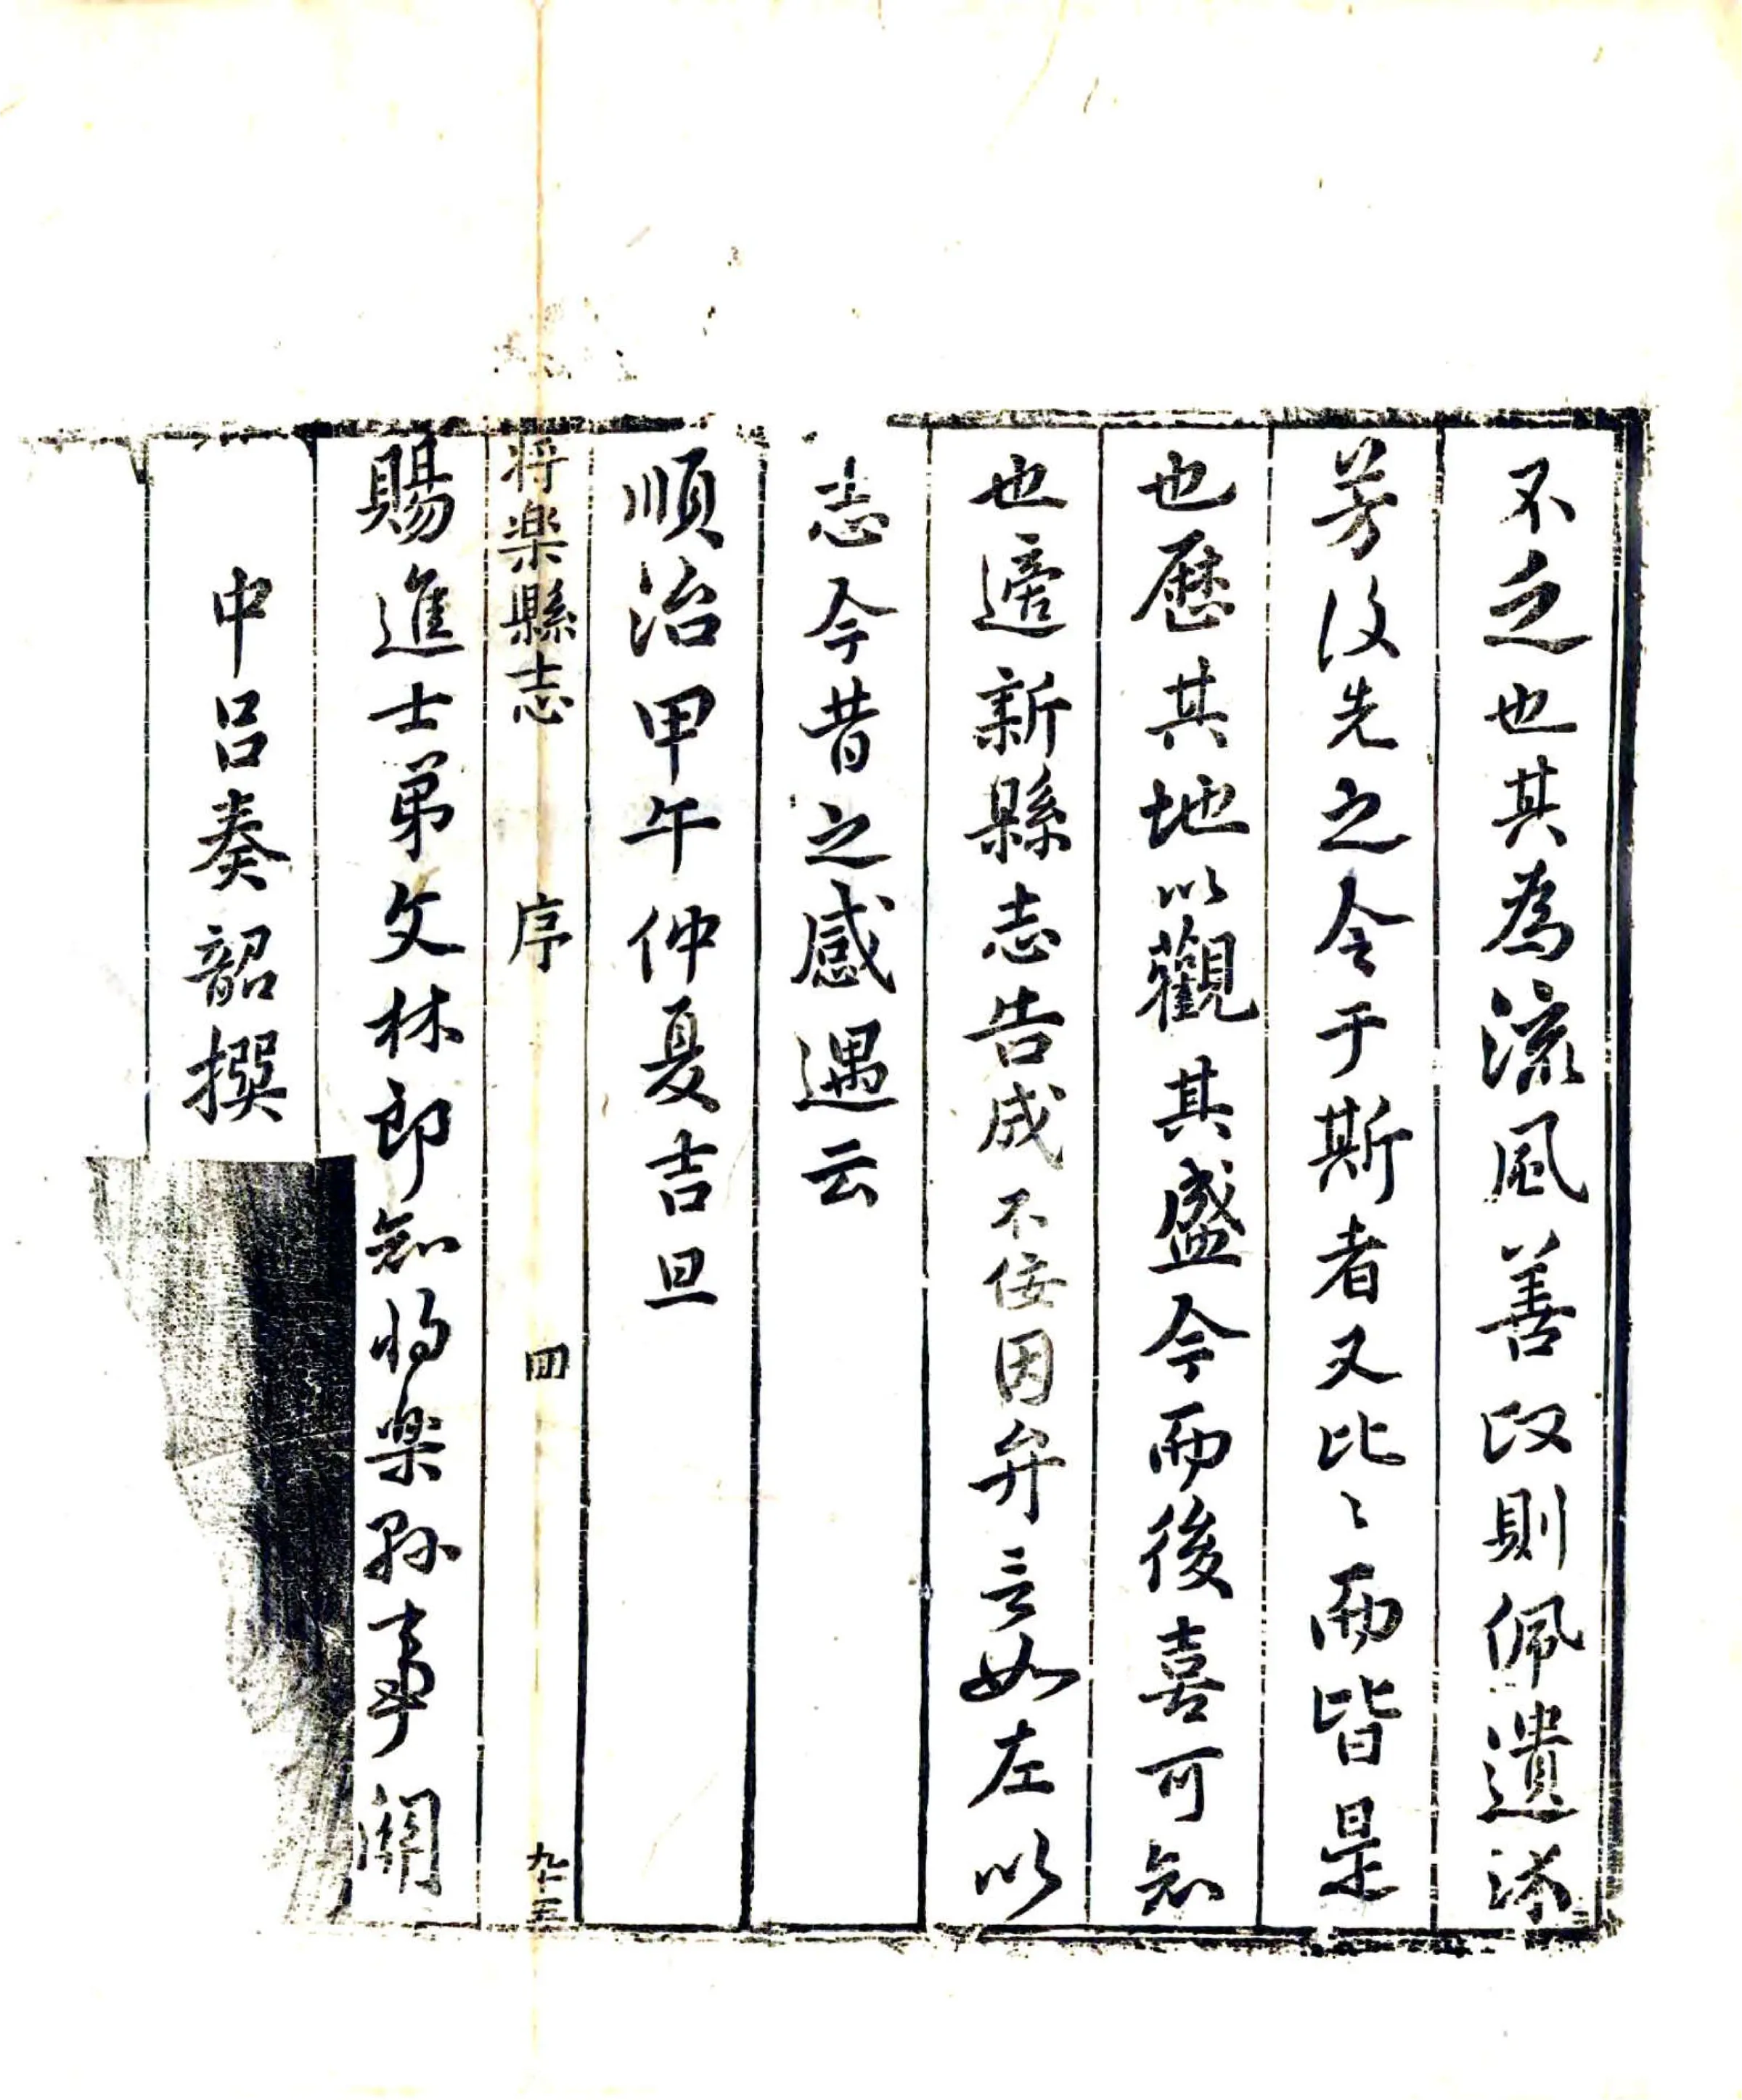 不乏也其為流風善政則佩遺
芳後先之令于斯者又比〻而皆是
也歷其地以觀其盛今而後喜可知
也適新縣志告成不佞因弁言如左以
志今昔之感遇云
順治甲午仲夏吉旦
将楽縣志 序 四
賜進士弟文林郎知将楽縣事關
中呂奏韶撰